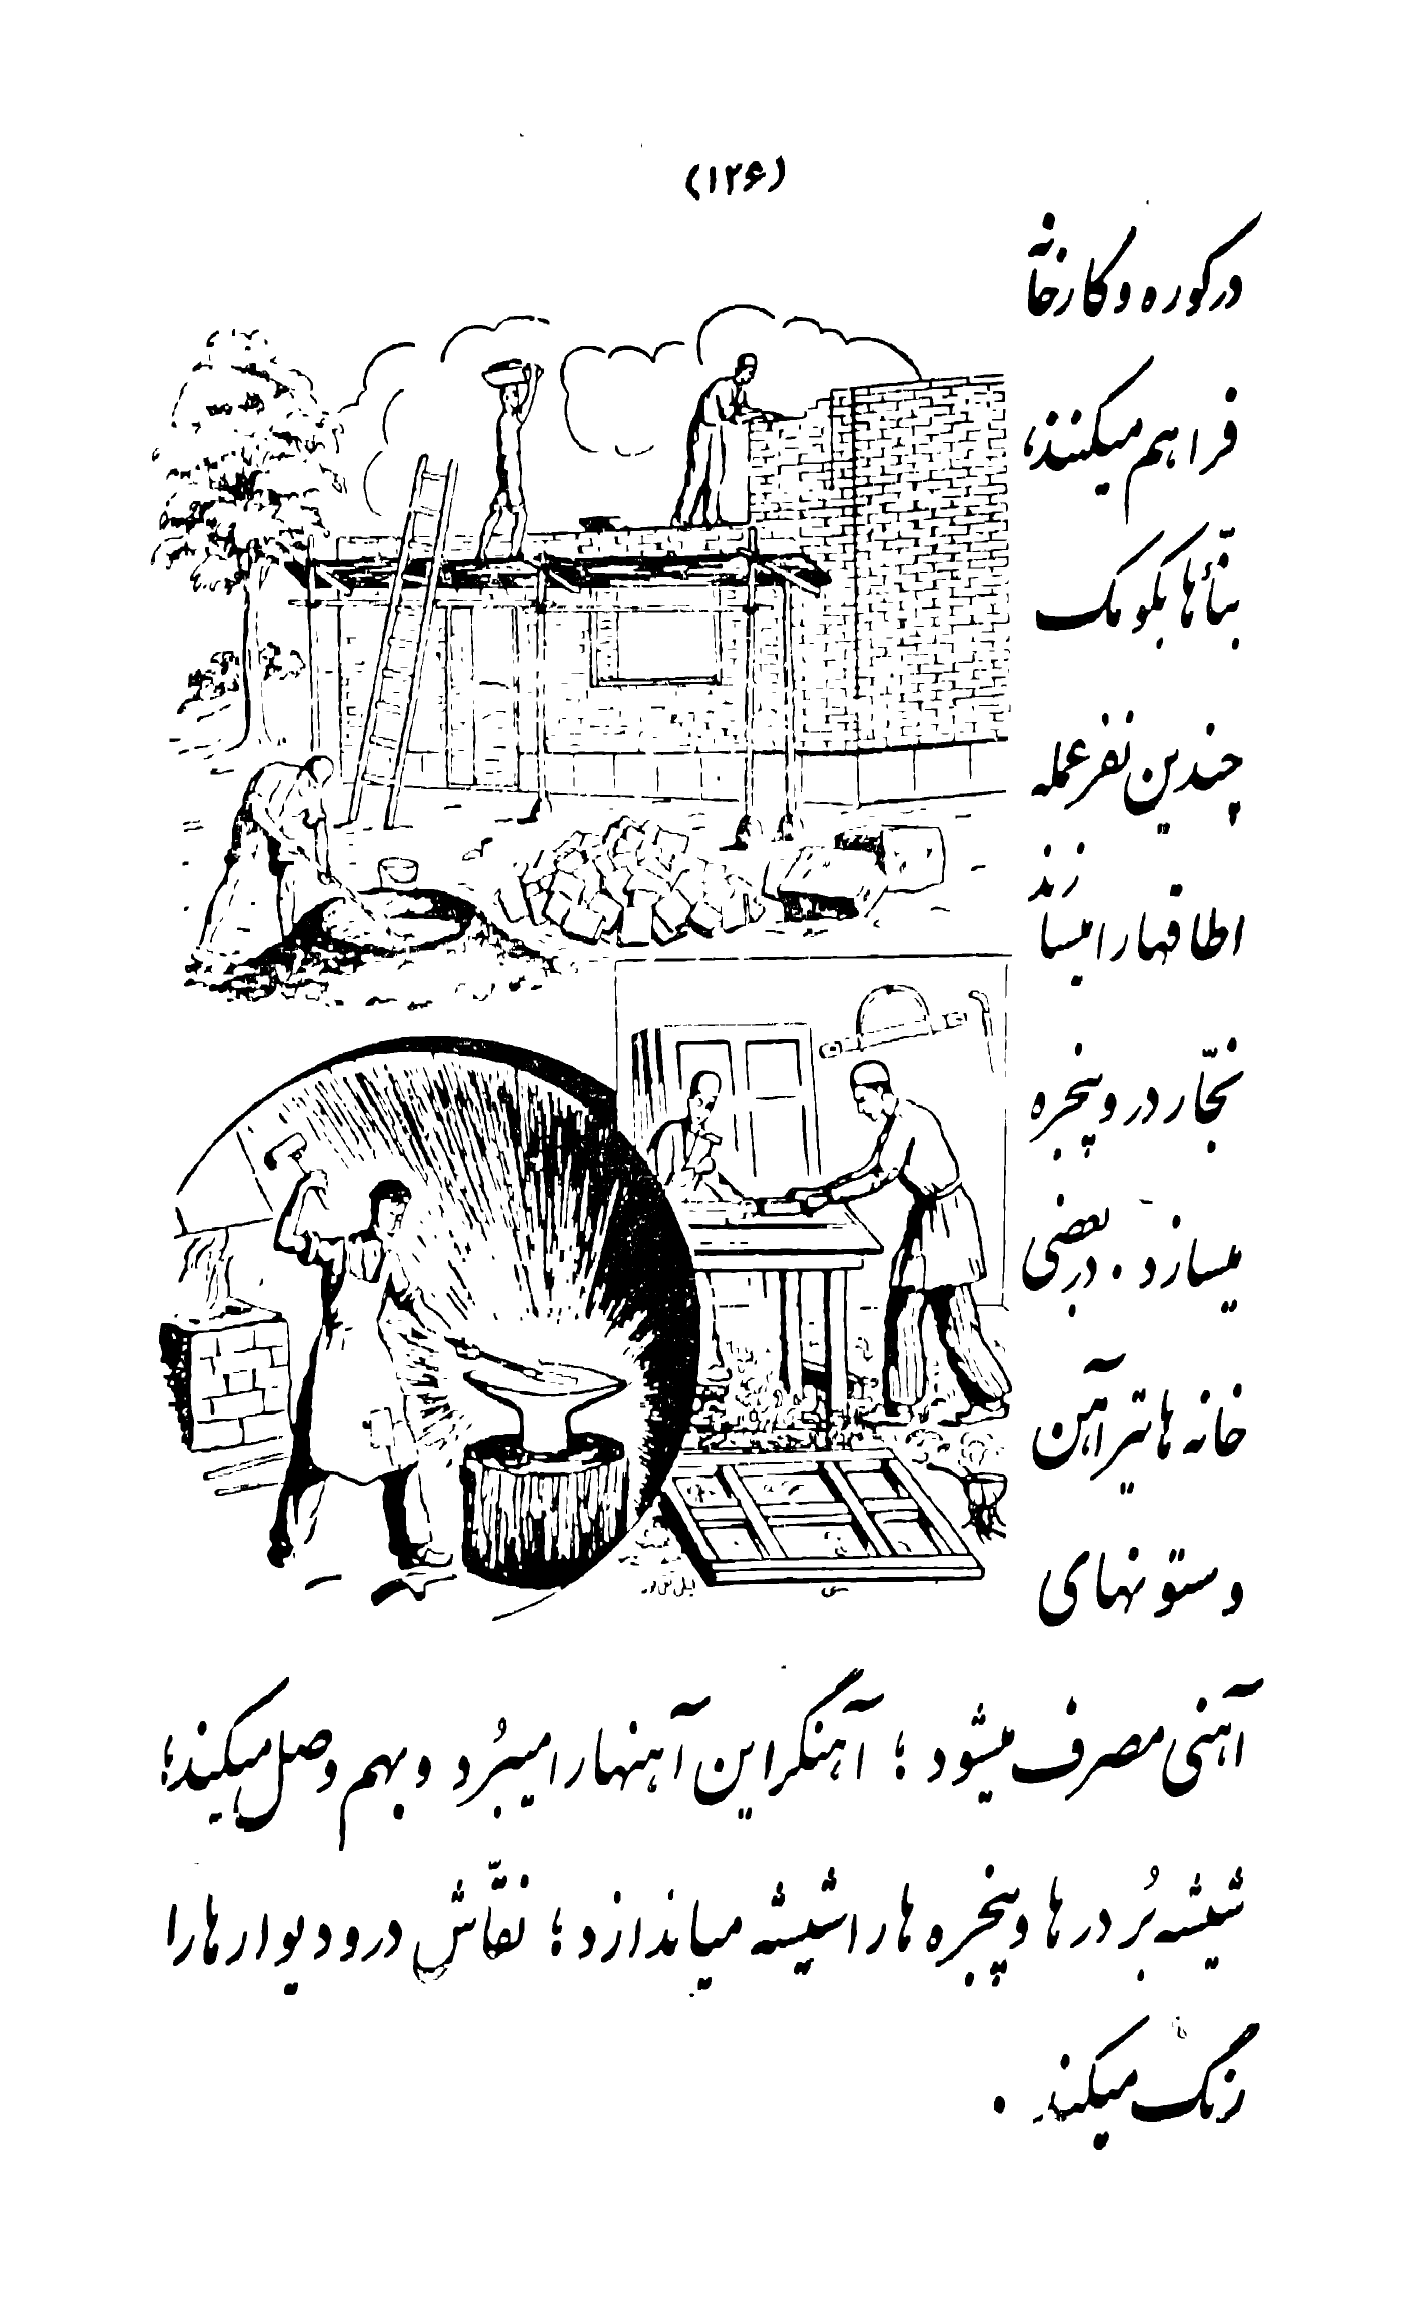 (۱۲۶)
در کوره و کارخانه
فراهم میکنند،
بنّاءها بکومک
چندین نفر عمله
اطاقها را میسازند
نجّار در و پنجره
میسازد . در بعضی
خانه ها تیر آهن
و ستونهای
آهنی مصرف میشود ؛ آهنگر این آهنها را میبُرد و بهم وصل میکند ؛
شیشه بُر درها و پنجره ها را شیشه میاندازد ؛ نقّاش در و دیوارها را
رنگ میکند .